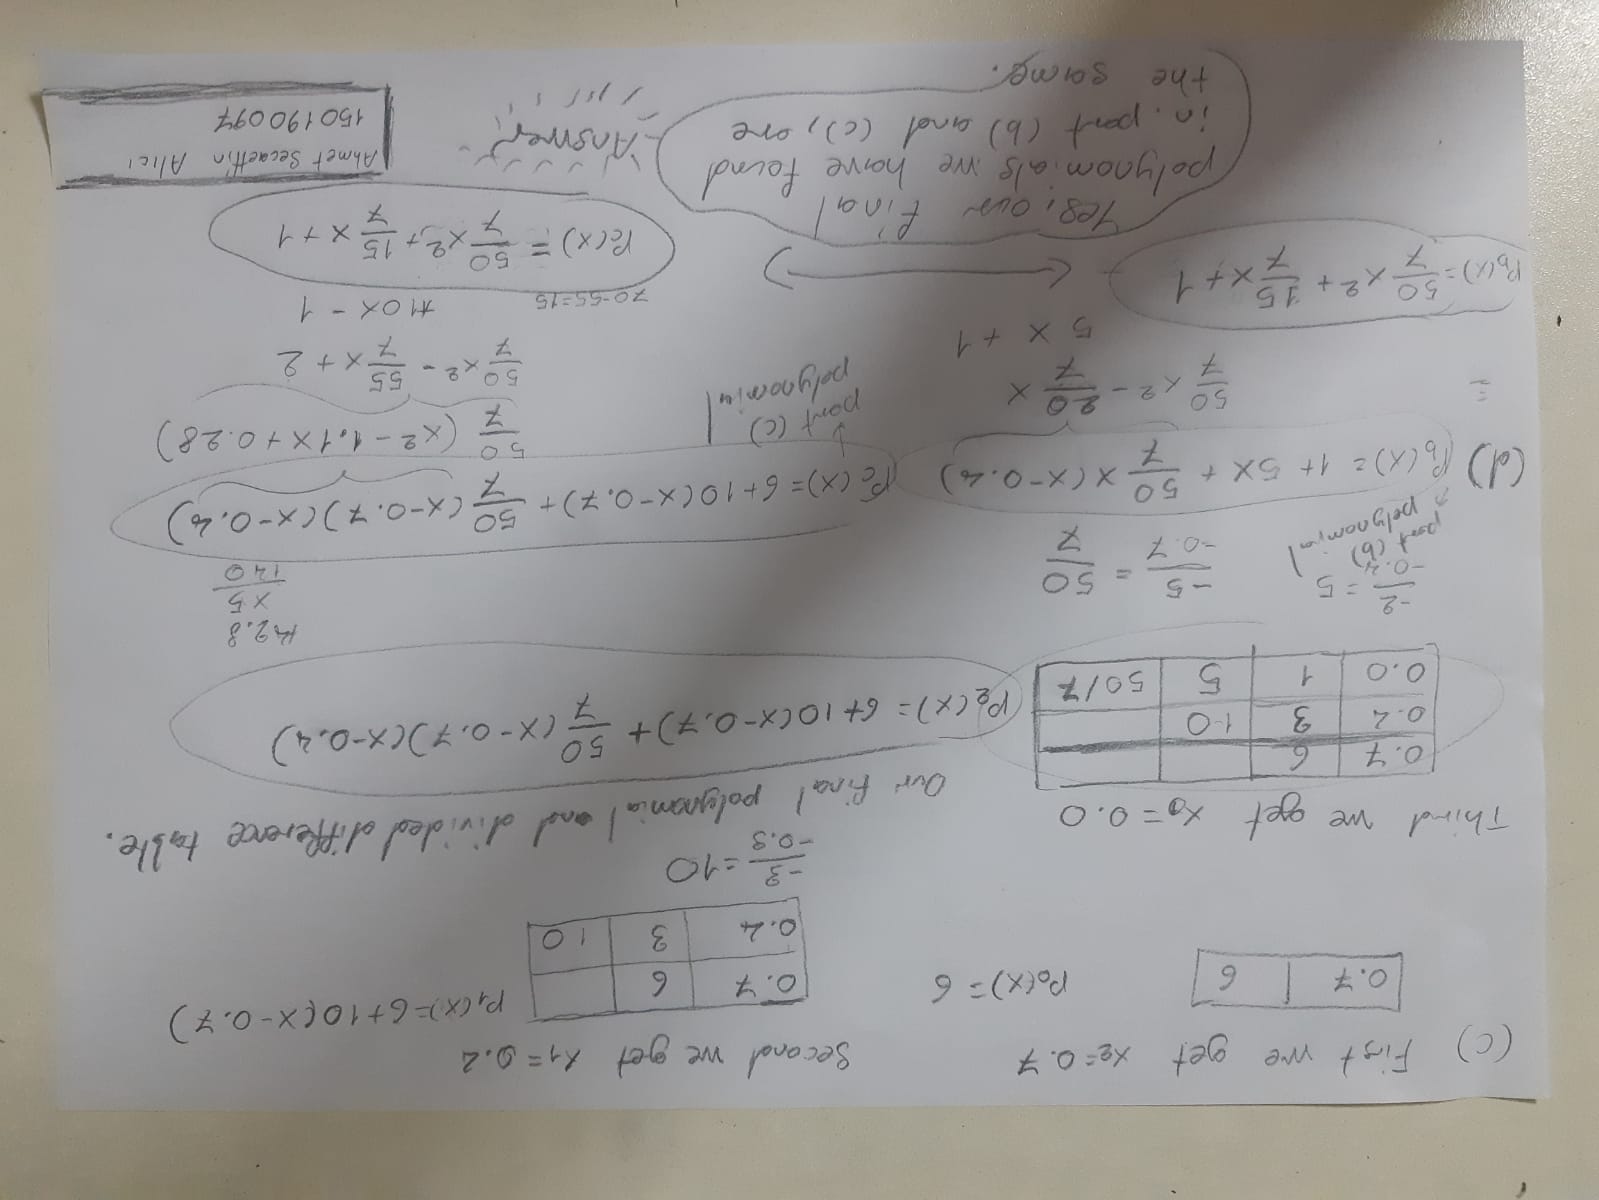 (c) First we get x₂=0.7
0.7 | 6
P₀(x)=6
Second we get x₁=0.4
0.7 | 6 |
0.4 | 3 | 10
P₁(x)=6+10(x-0.7)
-3/-0.3 =10
Third we get x₀=0.0
0.7 | 6 | |
0.4 | 3 | 10 |
0.0 | 1 | 5 | 50/7
Our final polynomial and divided difference table.
P₂(x)=6+10(x-0.7)+50/7(x-0.7)(x-0.4)
-2/-0.4 =5
-5/-0.7 = 50/7
2.8
x5
140
part (b)
polynomial
(d) P_b(x)= 1+ 5x + 50/7 x(x-0.4)
50/7 x² - 20/7 x
5x +1
P_b(x)=50/7 x² + 15/7 x+1
P_c(x)=6+10(x-0.7)+ 50/7 (x-0.7)(x-0.4)
part (c)
polynomial
50/7 (x²-1.1x+0.28)
50/7 x² - 55/7 x + 2
+10x-1
70-55=15
P_c(x) = 50/7 x² + 15/7 x +1
Yes, our final
polynomials we have found
in part (b) and (c), are
the same.
Answer
Ahmet Secaettin Alici
150190097